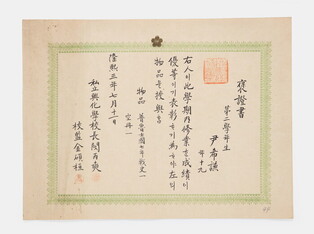 褒證書
第二學年生
尹希謙
年十九
右人이此學期乃修業成績이
優等이기表彰하기爲하야左의
物品을授與홈
物品
空冊一
隆熙三年七月十二日
私立興化學校長閔丙奭
校監金碩桓